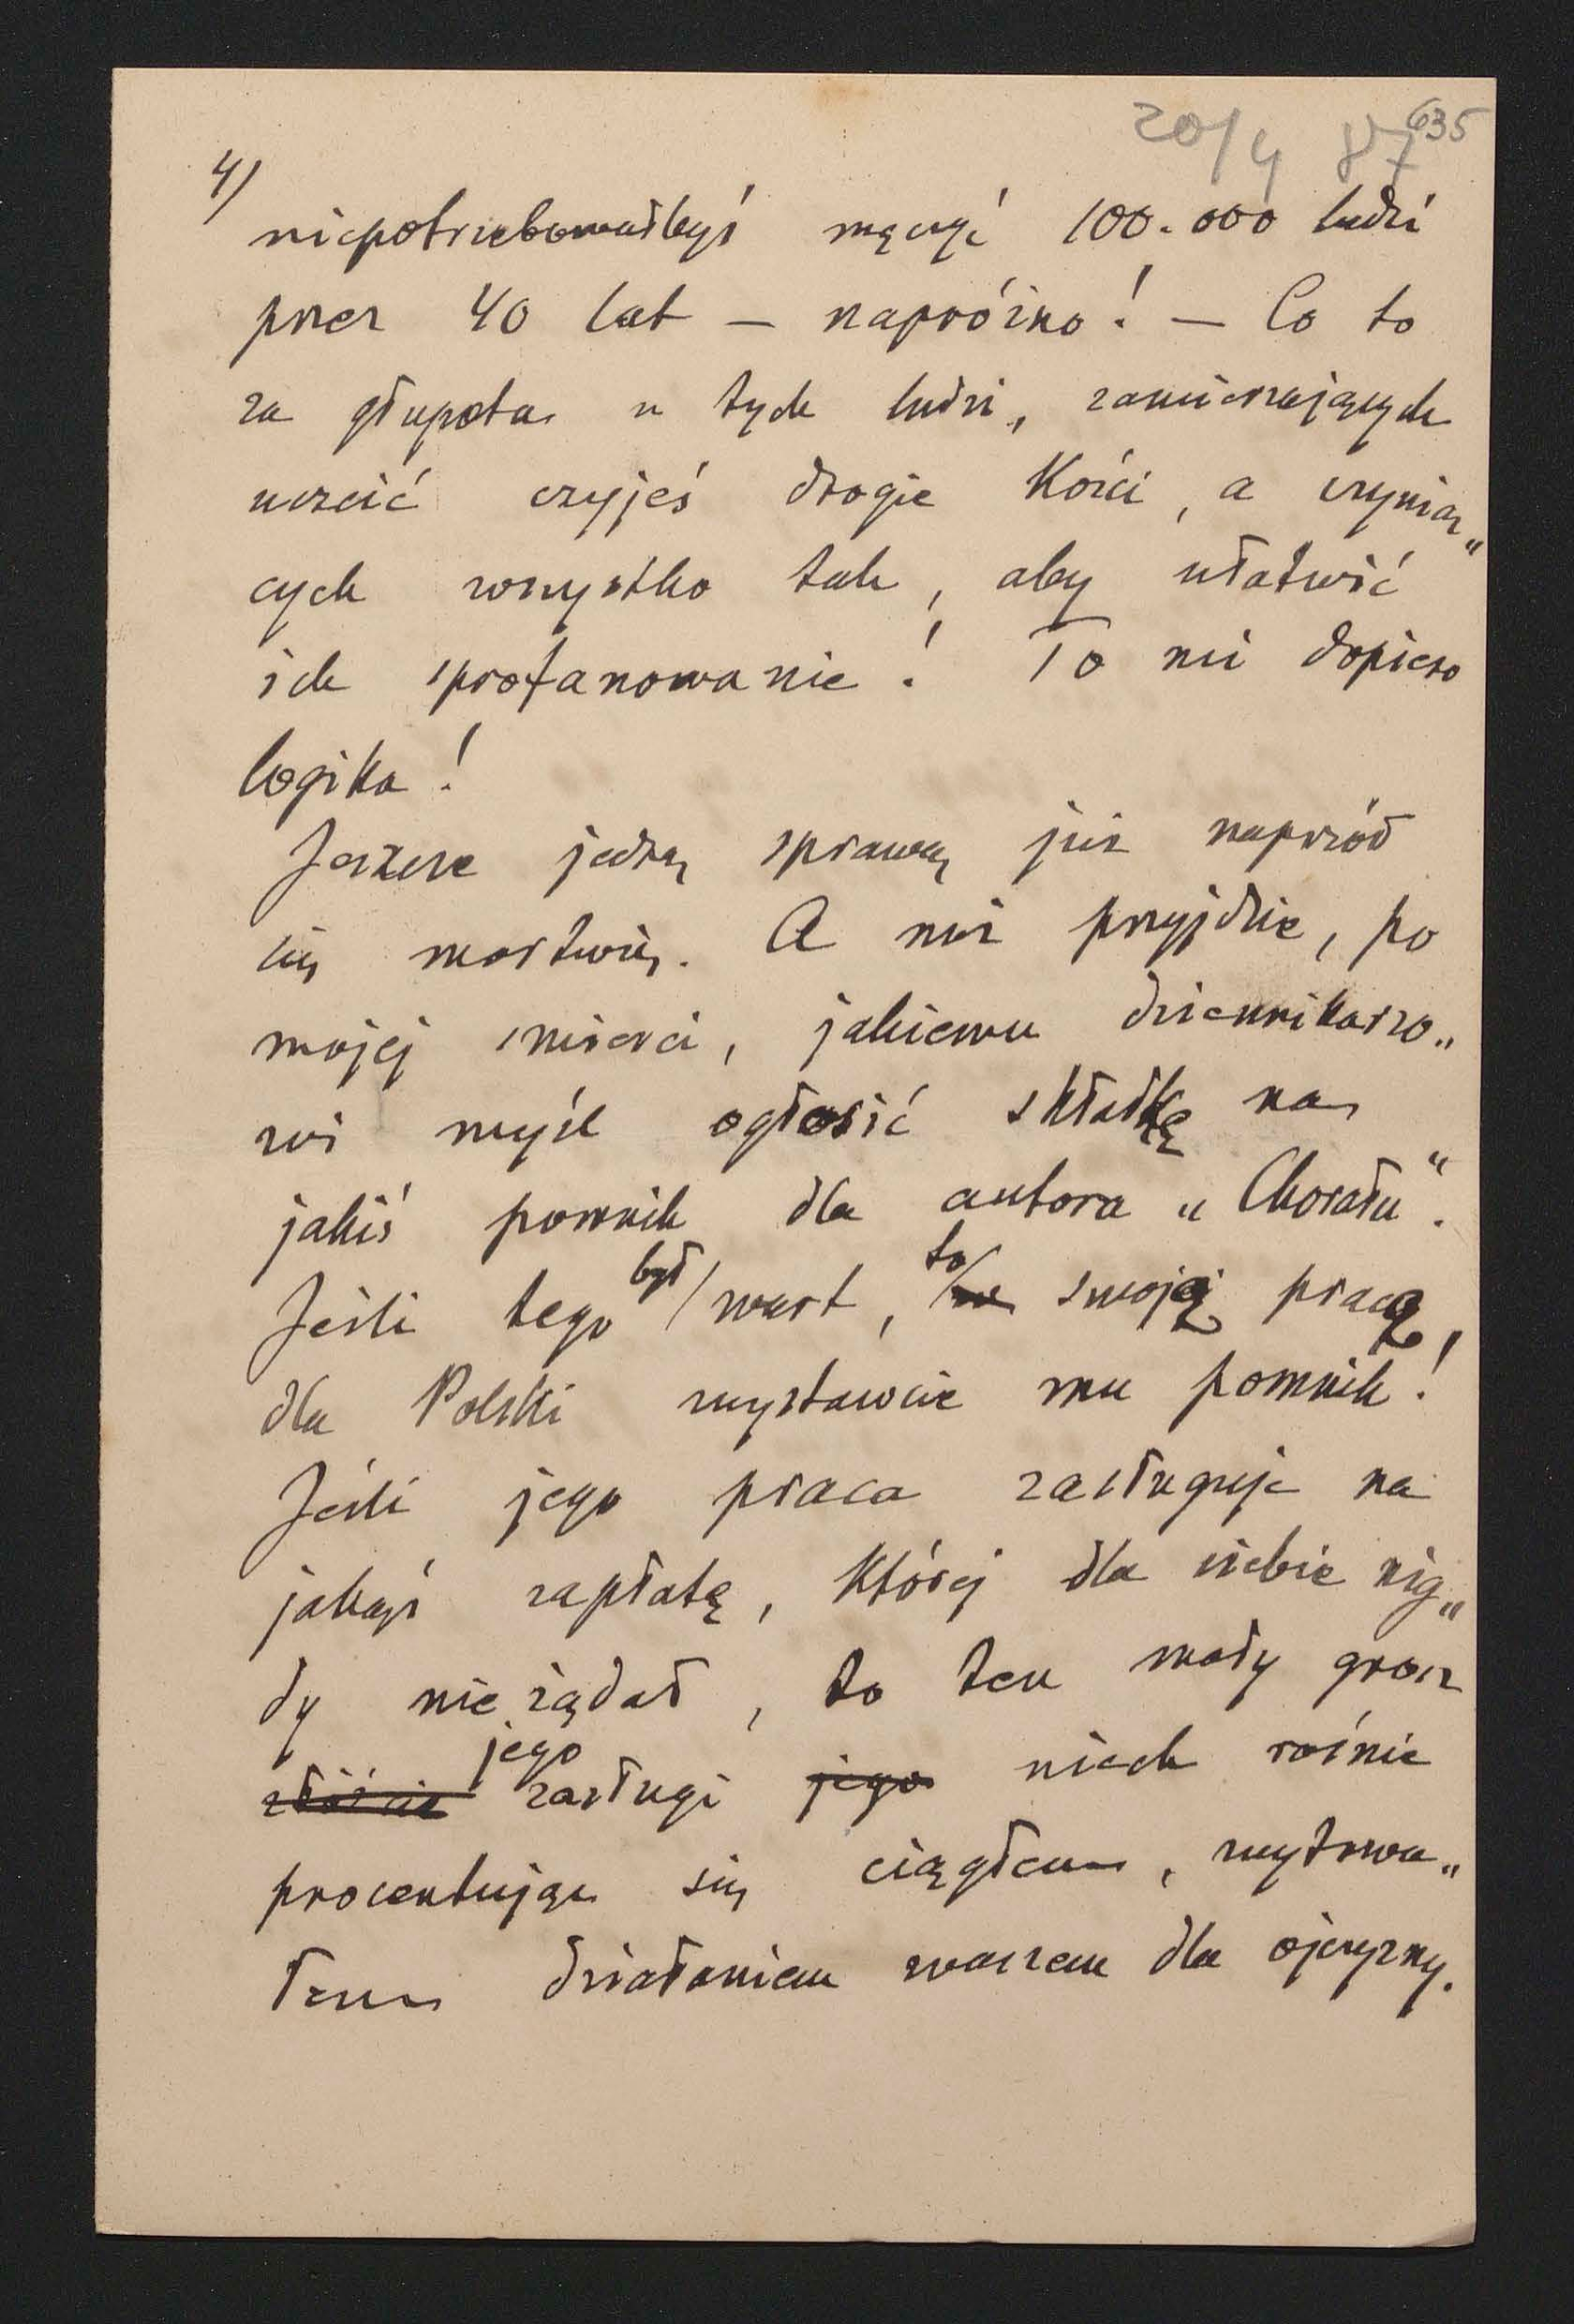 20/4 87 635
4/
niepotrzebowałbyś męczyć 100.000 ludzi
przez 40 lat — napróżno! — Co to
za głupota u tych ludzi, zamierzających
uczcić czyjeś drogie kości, a czynią„
cych wszystko tak, aby ułatwić
ich sprofanowanie! To mi dopiero
logika!
Jeszcze jedną sprawą już naprzód
się martwię. A nuż przyjdzie, po
mojej śmierci, jakiemu dziennikarzo„
wi myśl ogłosić składkę na
jakiś pomnik dla autora „Chorału“.
Jeśli tego był/wart, to/ swoją pracą,
dla Polski wystawcie mu pomnik!
Jeśli jego praca zasługuje na
jakąś zapłatę, której dla siebie nig„
dy nie żądał, to ten mały grosz
jego zasługi jego niech rośnie
procentując się ciągłem, wytrwa„
łem działaniem waszem dla ojczyzny.